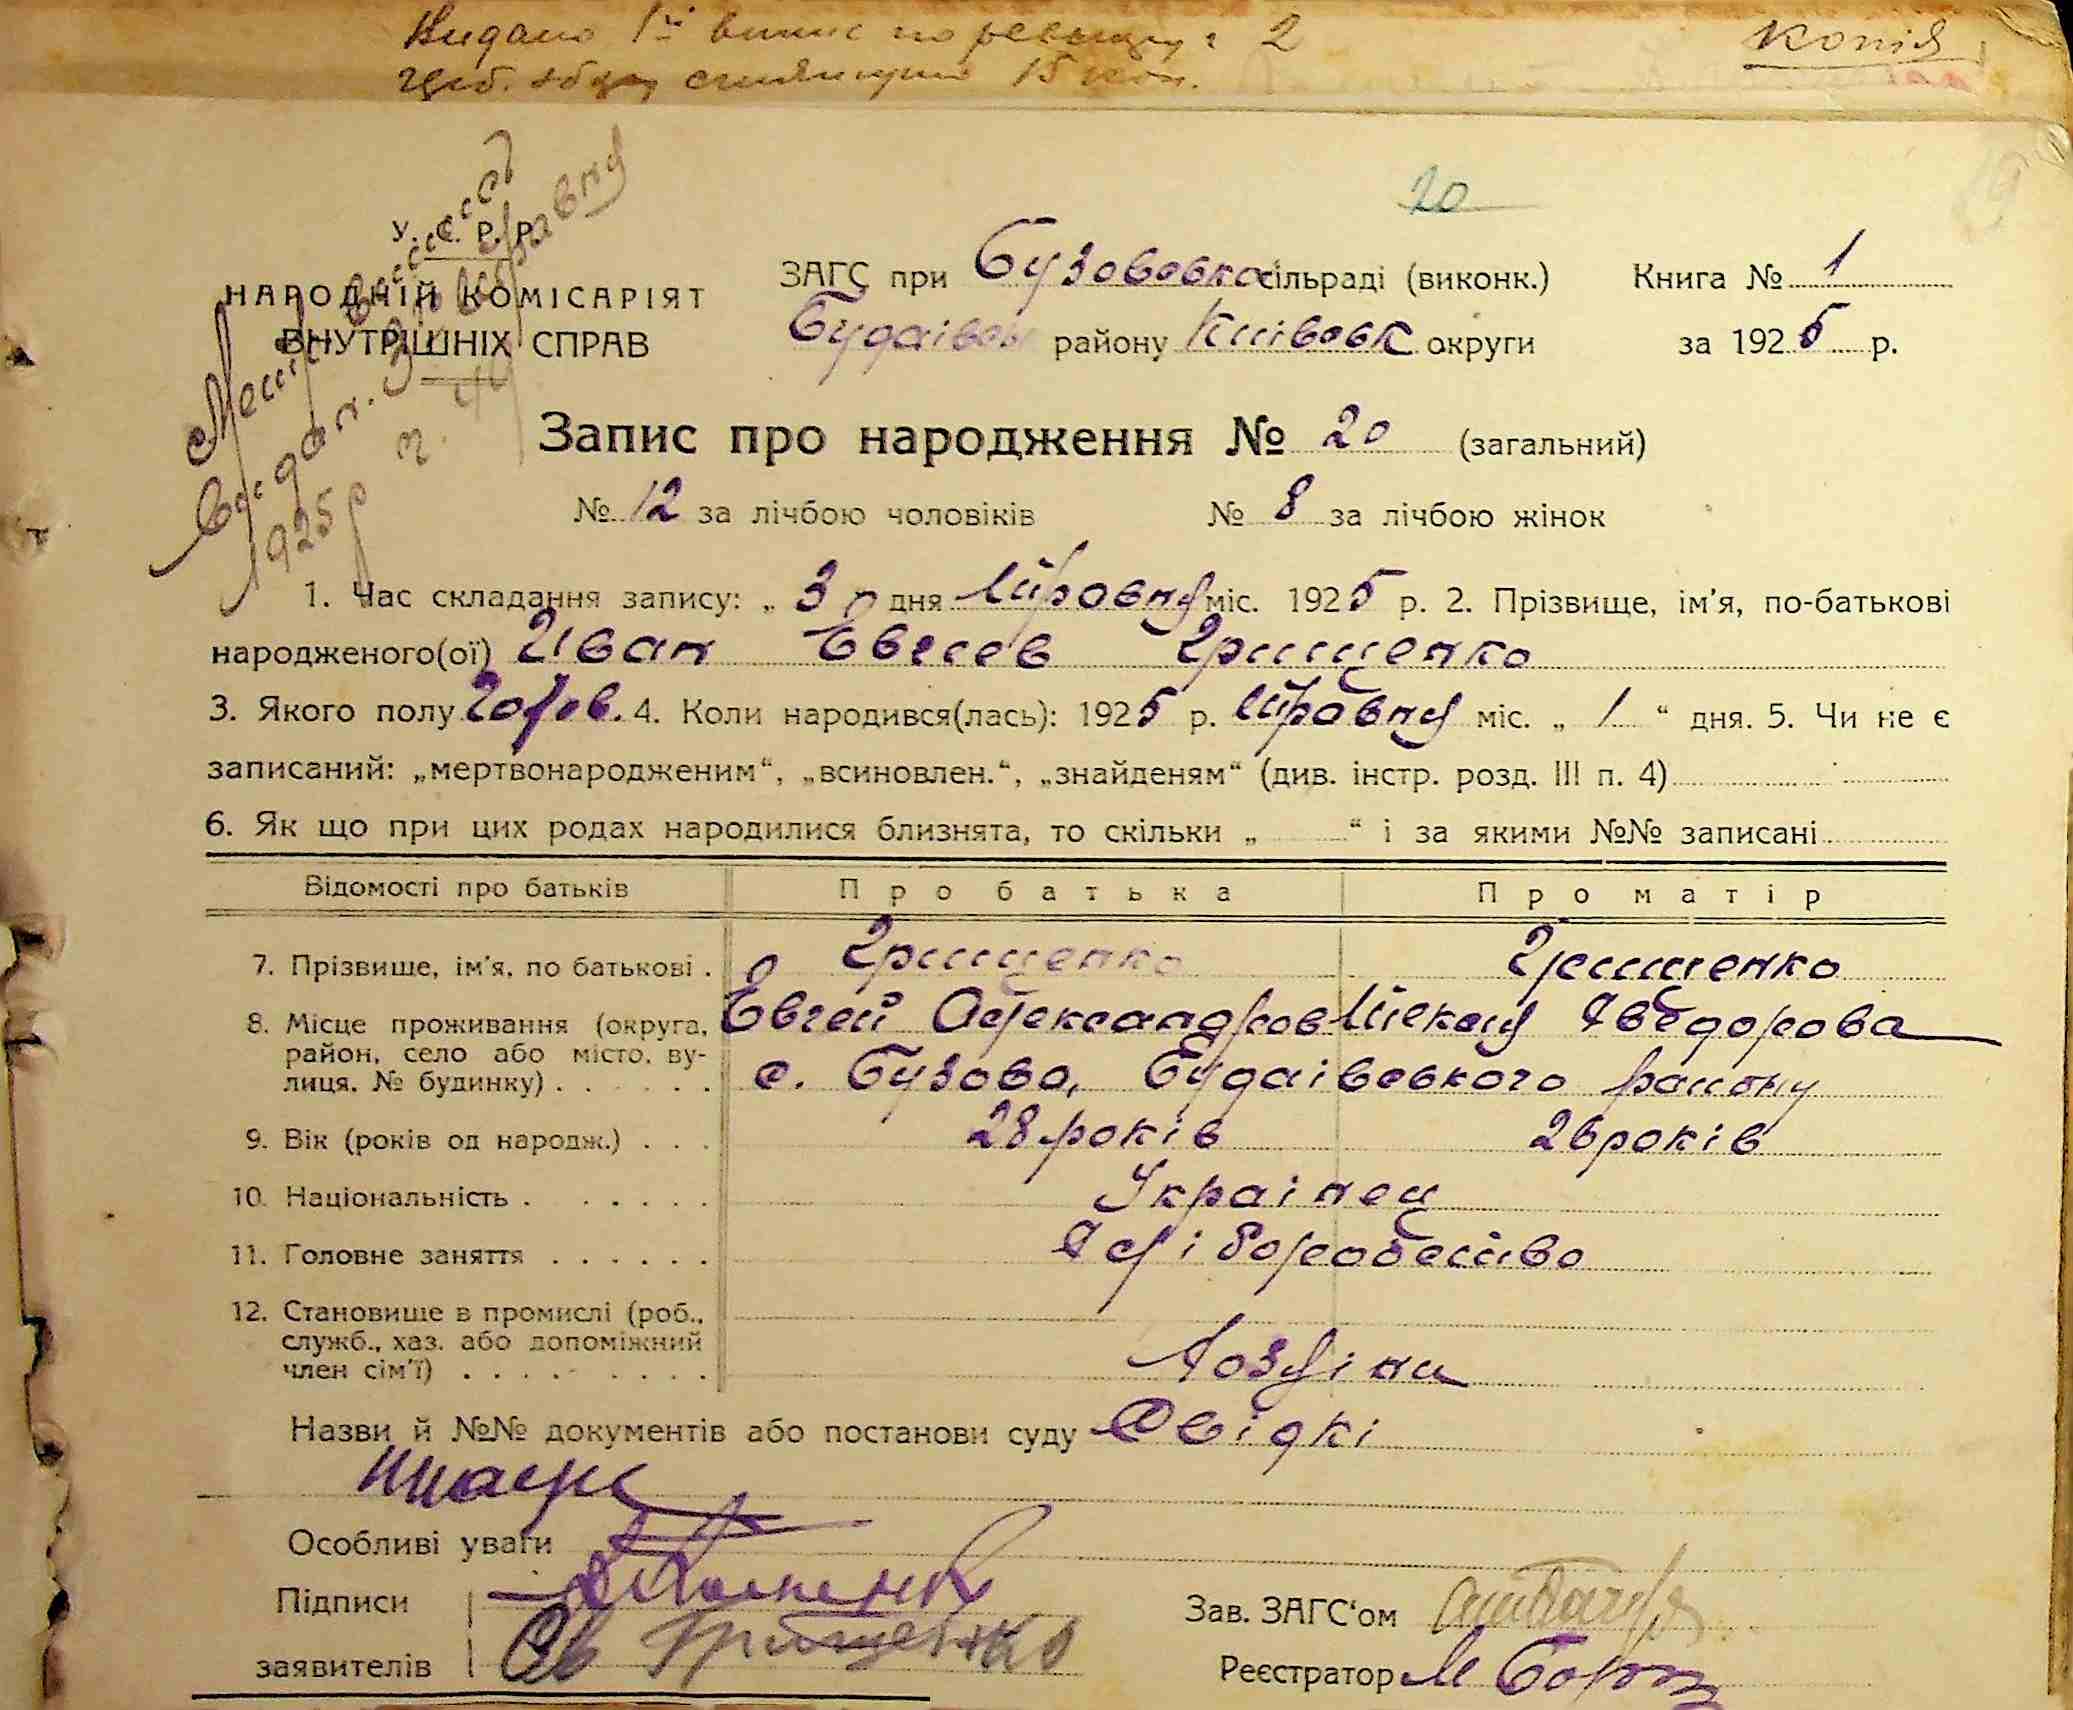 Видано 1й випис по реєстру: 2
15 коп.
копія
20
У. С. Р. Р.
НАРОДНІЙ КОМІСАРІЯТ
ВНУТРІШНІХ СПРАВ
видан. 3
1925 р
ЗАГС при Бузововско сільраді (виконк.) Книга № 1
Будаівск району Киівовск округи за 1925 р.
Запис про народження № 20 (загальний)
№ 12 за лічбою чоловіків № 8 за лічбою жінок
1. Час складання запису: „ 3 " дня травня міс. 1925 р. 2. Прізвище, ім'я, по-батькові
народженого(ої) Иван Евгеев Грищенко
3. Якого полу Чолов. 4. Коли народився(лась): 1925 р. травня міс. „ 1 “ дня. 5. Чи не є
записаний: „мертвонародженим“, „всиновлен.“, „знайденям“ (див. інстр. розд. III п. 4)
6. Як що при цих родах народилися близнята, то скільки „ “ і за якими №№ записані
Відомості про батьків Про батька Про матір
7. Прізвище, ім'я, по батькові . Грищенко Грищенко
Евгей Олександров Текля Хведорова
8. Місце проживання (округа,
район, село або місто, ву-
лиця, № будинку) . . . . . . с. Бузова, Будаівовкого району
9. Вік (років од народж.) . . . 28 років 26 років
10. Національність . . . . . . Украінец
11. Головне заняття . . . . . . Хліборобство
12. Становище в промислі (роб.,
служб., хаз. або допоміжний
член сім'ї) . . . . . . . . . Хозяіни
Назви й №№ документів або постанови суду Свідкі
Особливі уваги
Підписи
заявителів Єв Грищенко
Зав. ЗАГС‘ом
Реєстратор М